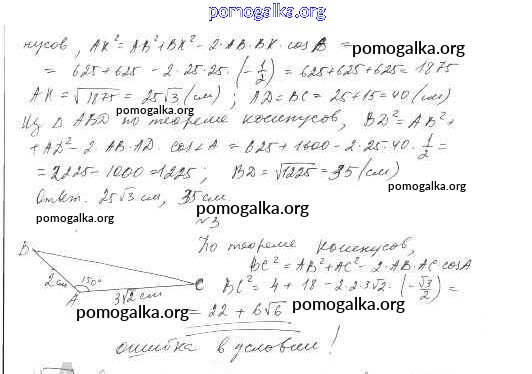 pomogalka.org
нусов, AK² = AB² + BK² - 2·AB·BK·cos B =
pomogalka.org
= 625 + 625 - 2·25·25·(-1/2) = 625+625+625 = 1875
AK = √1875 = 25√3 (см); AD = BC = 25+15 = 40 (см)
pomogalka.org
Из Δ ABD по теореме косинусов, BD² = AB² +
pomogalka.org
+ AD² - 2·AB·AD·cos∠A = 625 + 1600 - 2·25·40·1/2 =
= 2225 - 1000 = 1225; BD = √1225 = 35 (см)
pomogalka.org
Ответ. 25√3 см, 35 см.
pomogalka.org
pomogalka.org
№3
По теореме косинусов,
BC² = AB² + AC² - 2·AB·AC cosA
BC² = 4 + 18 - 2·2·3√2·(-√3/2) =
= 22 + 6√6
pomogalka.org
pomogalka.org
B
2 см
A
150°
3√2 см
C
ошибка в условии!
pomogalka.org